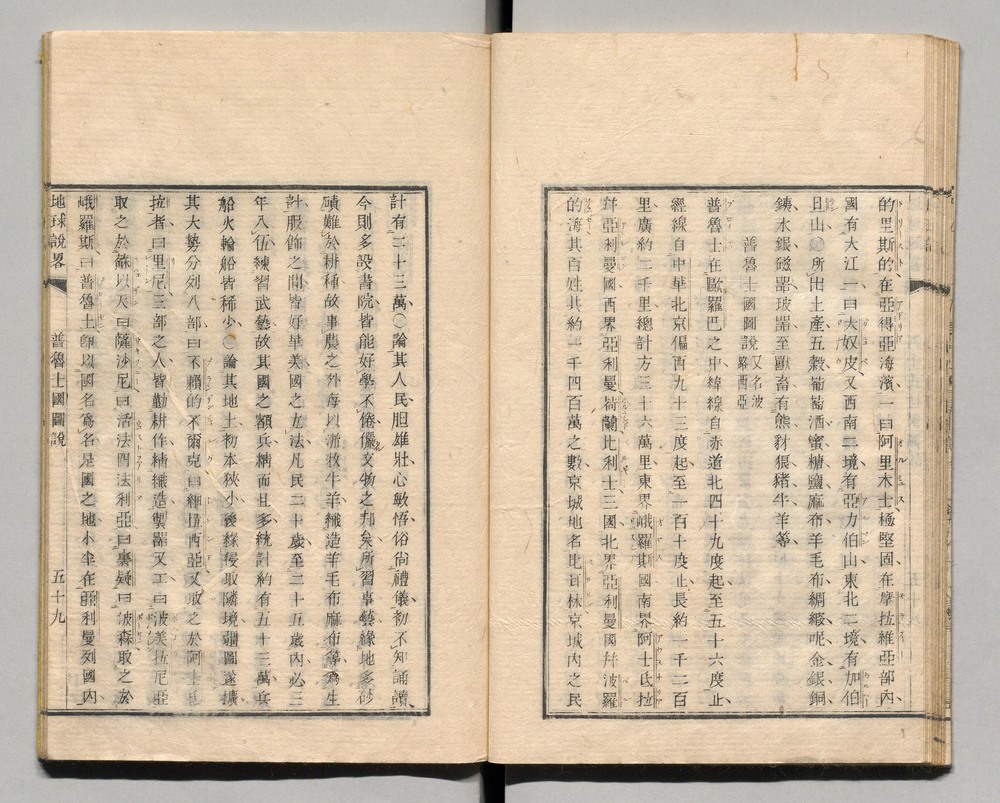 的里斯的在亞得亞海濱一曰阿里木士極堅固在摩拉維亞部內
國有大江一曰大奴皮又西南二境有亞力伯山東北二境有加伯
旦山〇所出土產五穀葡萄酒蜜糖鹽麻布羊毛布綢緞呢金銀銅
錶水銀磁器玻器至獸畜有熊豺狼猪牛羊等
普魯士國圖說又名波路西亞
普魯士在歐羅巴之中緯線自赤道北四十九度起至五十六度止
經線自中華北京偏西九十三度起至一百十度止長約一千二百
里廣約二千里總計方三十六萬里東界峨羅斯國南界阿士氐拉
幷亞利曼國西界亞利曼荷蘭比利士三國北界亞利曼國幷波羅
的海其百姓共約一千四百萬之數京城地名比耳林京城內之民
計有二十三萬〇論其人民胆雄壯心敏悟俗尙禮儀初不知誦讀
今則多設書院皆能好學不倦儼文物之邦矣所習事藝緣地多砂
磧難於耕種故事農之外每以游牧牛羊織造羊毛布麻布等爲生
計服飾之間皆好華美國之左法凡民二十歲至二十五歲內必三
年入伍練習武藝故其國之額兵精而且多統計約有五十三萬兵
船火輪船皆稀少〇論其地土初本狹小後緣侵取隣境疆圖遂擴
其大勢分列八部曰不賴的不爾克曰細拉西亞又取之於阿士氐
拉者曰里尼三部之人皆勤耕作精織造製器又工曰波美拉尼亞
取之於蘇以天曰薩沙尼曰活法四法利亞曰裏疑曰波森取之於
峨羅斯曰普魯士卽以國名爲名是國之地小半在亞利曼列國內
地球說畧 普魯士國圖說 五十九